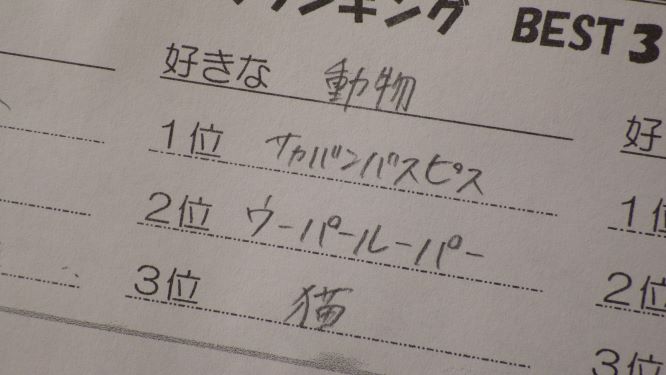 ランキング BEST3
好きな 動物
1位 サカバンバスピス
2位 ウーパールーパー
3位 猫
好
1位
2位
3位